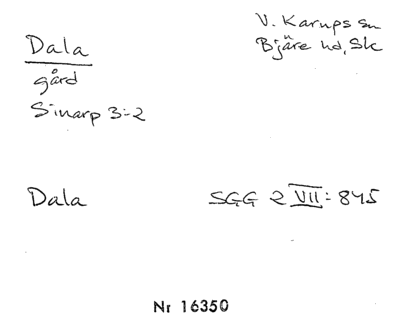 Dala
V. Karups sn
Bjäre hd, Sk
gård
Sinarp 3:2
Dala
SGG 2 VII: 845
Nr 16350